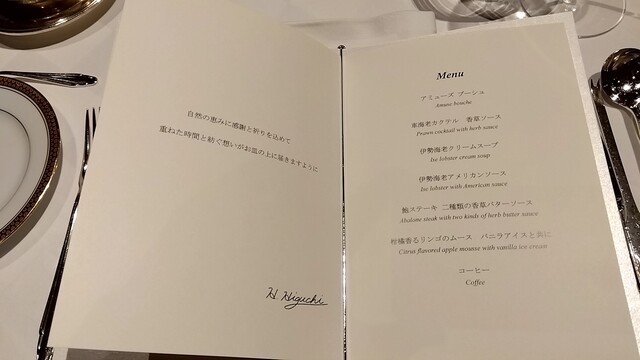 自然の恵みに感謝と祈りを込めて
重ねた時間と紡ぐ想いがお皿の上に届きますように
H. Higuchi
Menu
アミューズ ブーシュ
Amuse bouche
車海老カクテル 香草ソース
Prawn cocktail with herb sauce
伊勢海老クリームスープ
Ise lobster cream soup
伊勢海老アメリカンソース
Ise lobster with American sauce
鮑ステーキ 二種類の香草バターソース
Abalone steak with two kinds of herb butter sauce
柑橘香るリンゴのムース バニラアイスと共に
Citrus flavored apple mousse with vanilla ice cream
コーヒー
Coffee